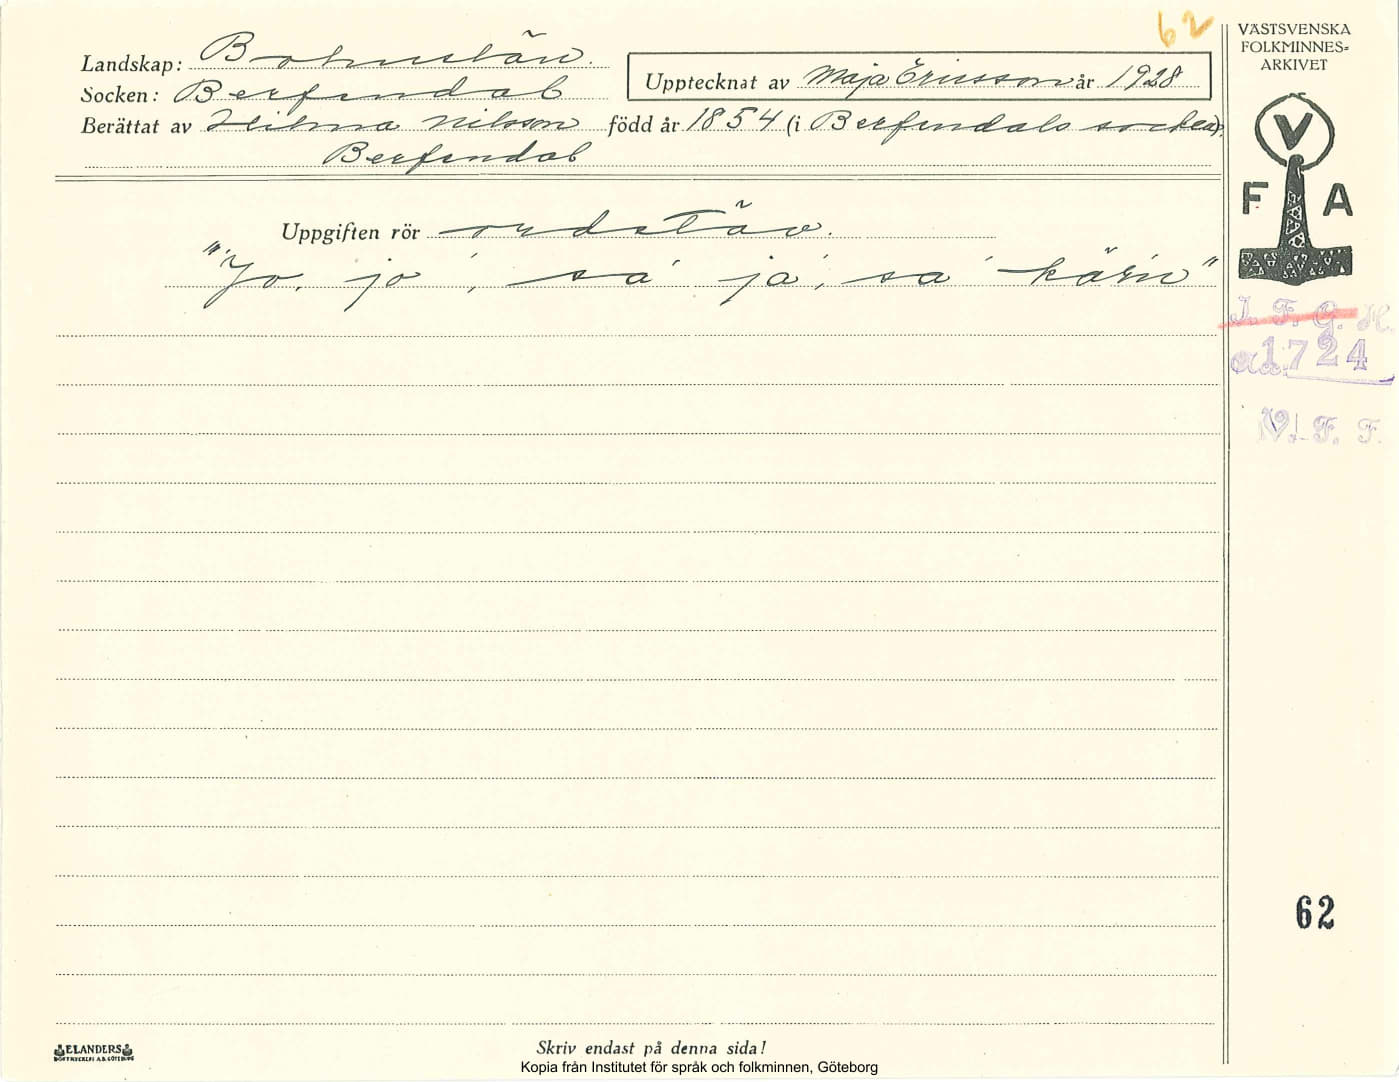 62
VÄSTSVENSKA
FOLKMINNES=
ARKIVET
Landskap: Bohuslän.
Upptecknat av Maja Ericsson år 1928
Socken: Berfendal
Berättat av Hilma Nilsson född år 1854 (i Berfendals socken).
Berfendal
V
F A
Uppgiften rör ordstäv.
"Jo, jo, sa' ja', sa' kärin"
I. F. G. H.
1724
V. F. F.
62
ELANDERS
BOKTRYCKERI A.B. GÖTEBORG
Skriv endast på denna sida!
Kopia från Institutet för språk och folkminnen, Göteborg